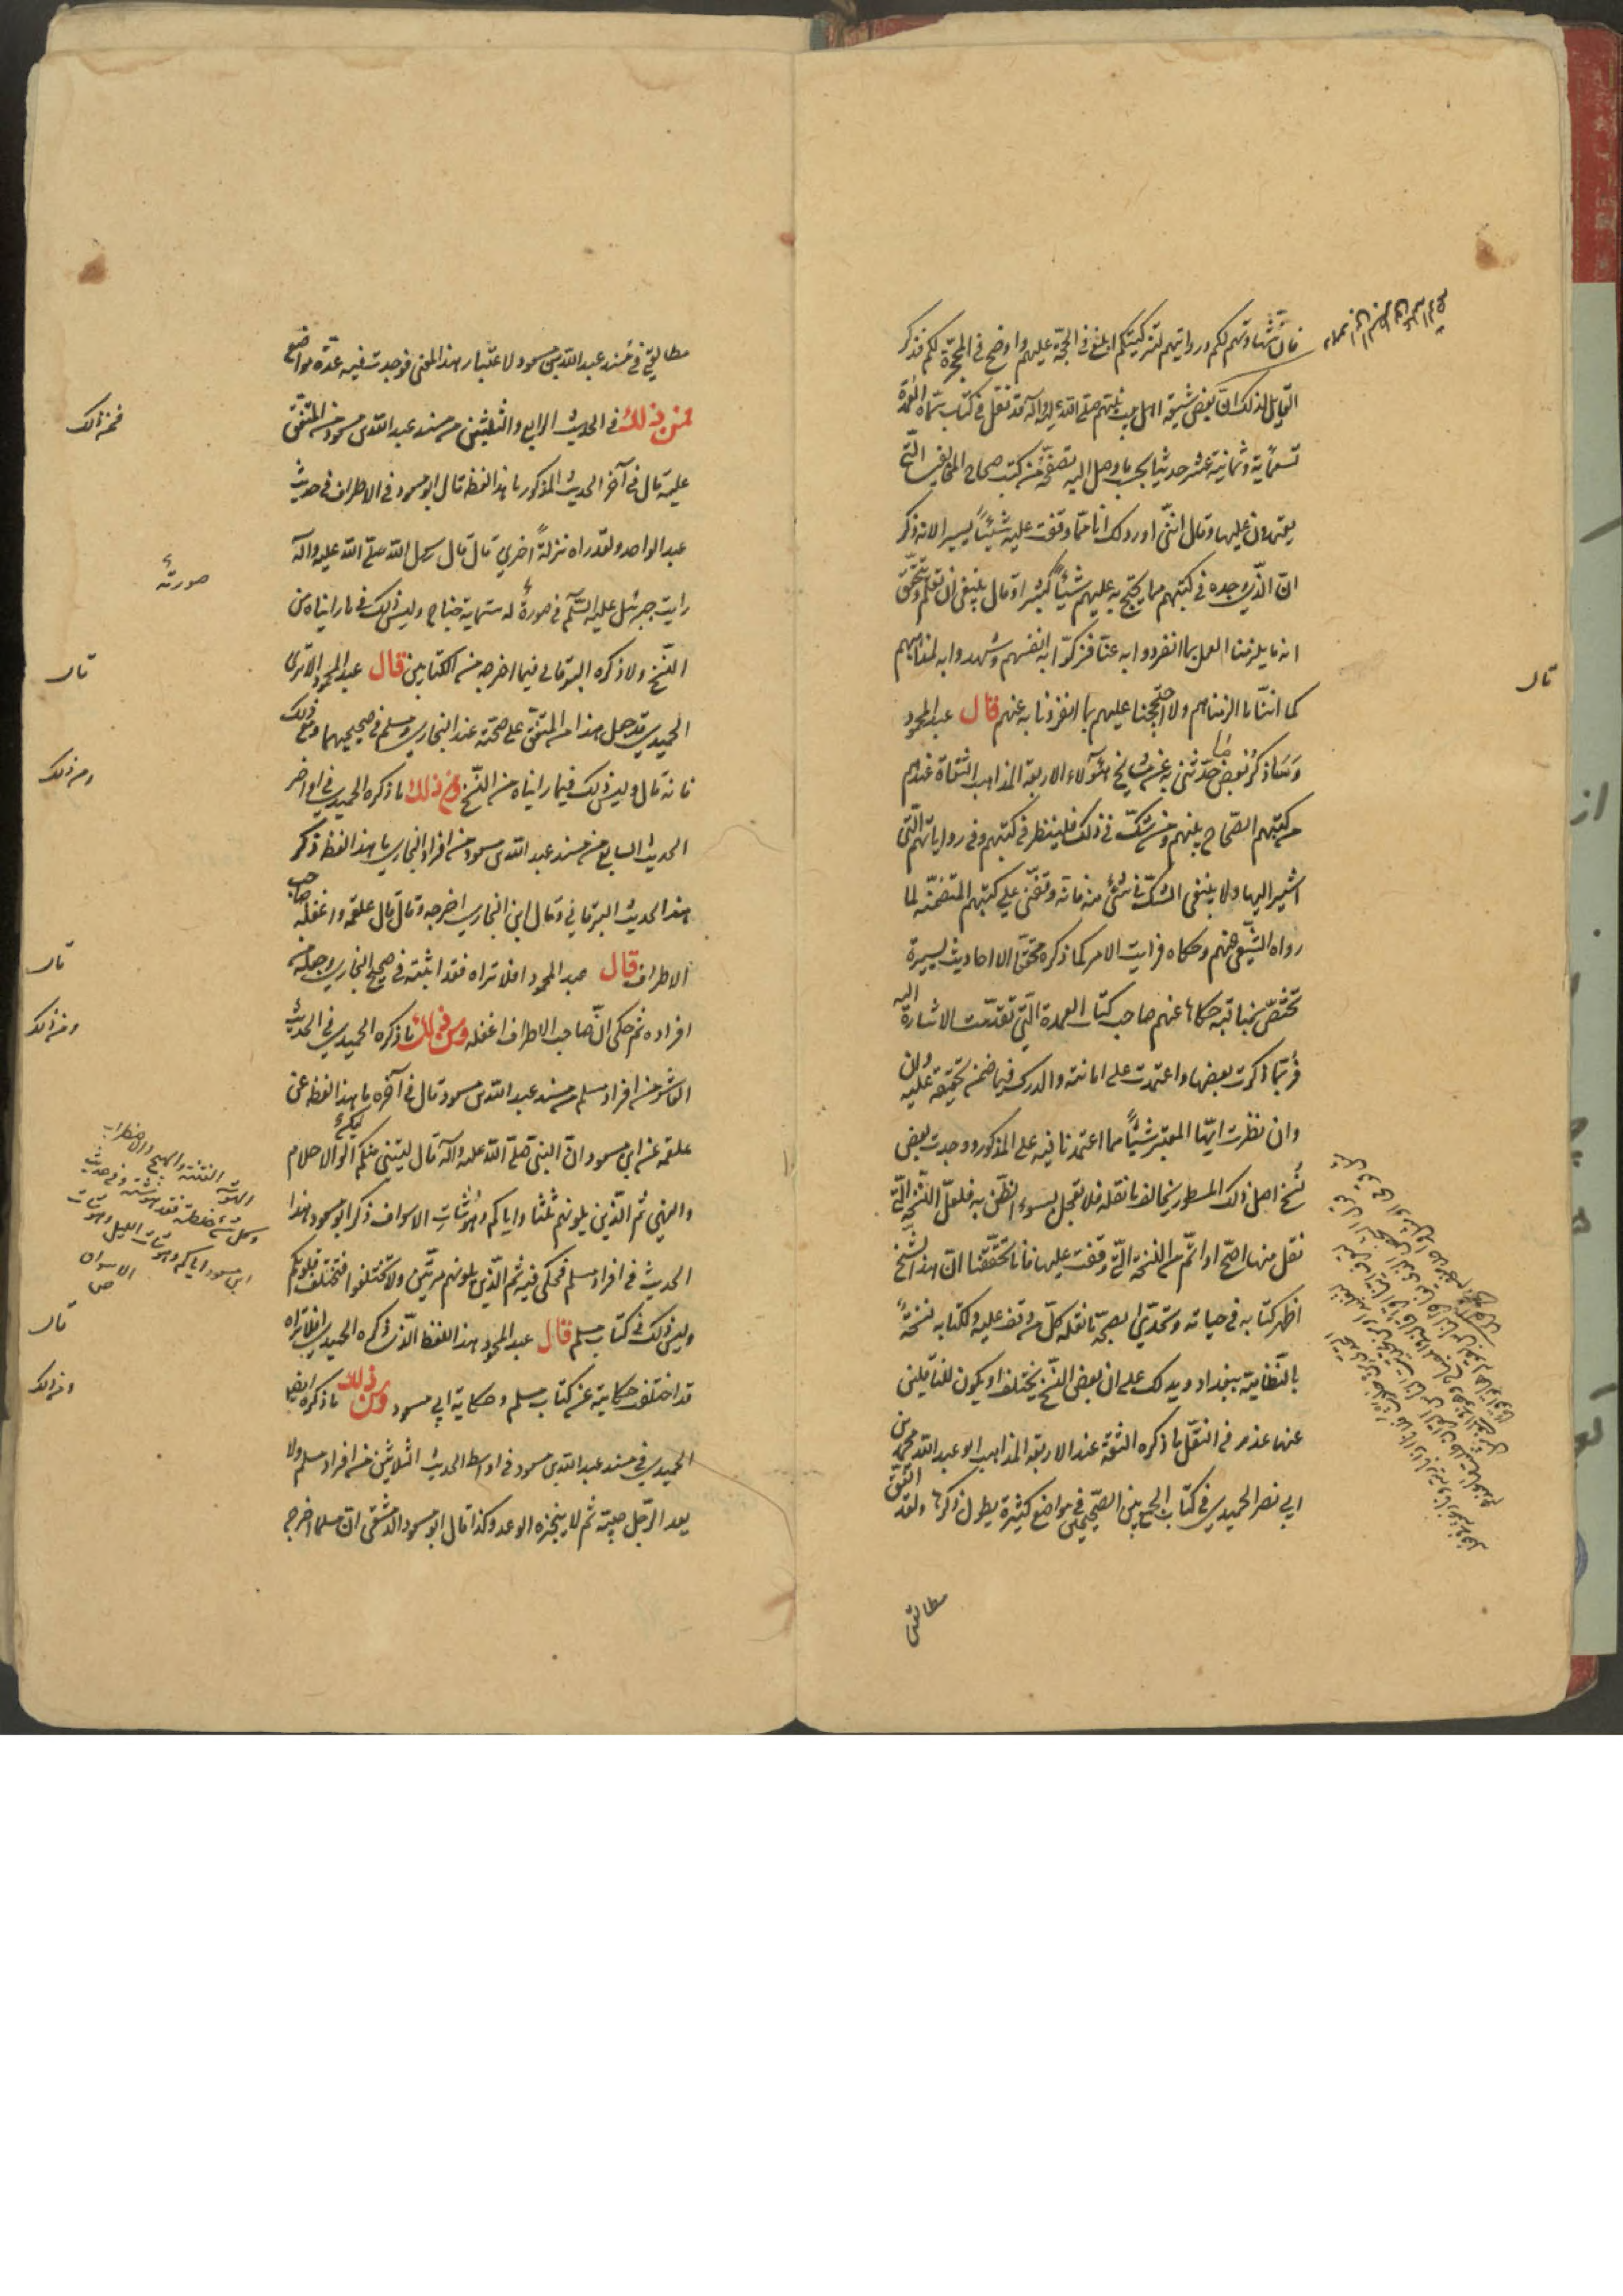 فان شهادتهم لكم وروايتهم لتزكيتكم ابلغ في الحجّة عليهم واوضح في المحجّة لكم فذكر
القايل لذلك انّ بعض شيعة اهل بيت نبيّهم صلّى الله عليه وآله قد نقل في كتاب سمّاه العمدة
تسعماية وثمانية عشر حديثا بحسب ما وصل اليه تصفّحه من كتب صحاح المخالفين الّتي
يعتمدون عليها وقال انّني اورد لك انا ممّا وقفت عليه شيئاً يسيرا لانه ذكر
انّ الّذي وجده في كتبهم مما يحتجّ به عليهم شيئاً كثيرا وقال ينبغي ان تعلم وتتحقّق
انه ما يلزمنا العمل بما انفردوا به عنّا فزكّوا به انفسهم وشهدوا به لمذاهبهم
كما انّنا ما الزمناهم ولا احتججنا عليهم بما انفردنا به عنهم قال عبد المحمود
وسأذكر بعض ما حدّثني به عن مشايخ هؤلاء الاربعة المذاهب الثقاة عندهم
من كتبهم الصّحاح بينهم ومن شكّ في ذلك فلينظر في كتبهم وفي رواياتهم الّتي
اشير اليها ولا ينبغي الشّك في شئ منه فانّه وقفني على كتبهم المتضمّنه لما
رواه الشّيعي عنهم وحكاه فرايت الامر كما ذكره محقّقا الا احاديث يسيرة
تختصّ بمناقبه حكاها عنهم صاحب كتاب العمدة الّتي تقدّمت الاشارة اليه
فربّما ذكرت بعضها واعتمدت على امانته والدرك فيما ضمن تحقيقه عليه وان
وان نظرت ايّها المعتبر شيئاً مما اعتمدنا فيه على المذكور ووجدت بعض
نسخ اصل ذلك المسطور يخالف ما نقله فلا تعجل بسوء الظّن به فلعلّ النّسخة الّتي
نقل منها اصحّ او اتمّ من النّسخة الّتي وقفت عليها فانا تحقّقنا انّ هذا الشيخ
اظهر كتابه في حياته وتحدّى بصحّة ما نقله كلّ من وقف عليه ولكتابه نسخة
بالنّظامية ببغداد ويدلك على ان بعض النّسخ يختلف او يكون للنّاقلين
عنها عذر في النّقل ما ذكره الثقة عند الاربعة المذاهب ابو عبد الله محمد بن
ابي نصر الحميدي في كتاب الجمع بين الصّحيحين في مواضع كثيرة يطول ذكرها ولقد اتّفق
مطالعتي
قال
مطالعتي في مسند عبد الله بن مسعود لاعتبار هذا المعنى فوجدت فيه عدّة مواضع
فمن ذلك في الحديث الرابع والثلثين من مسند عبد الله بن مسعود من المتّفق
عليه قال في آخر الحديث المذكور ما هذا لفظه قال ابو مسعود في الاطراف في حديث
عبد الواحد ولقد راه نزلةً اخرى قال قال رسول الله صلّى الله عليه وآله
رايت جبرئيل عليه السّلم في صورة له ستماية جناح وليس ذلك في ما رايناه من
النّسخ ولا ذكره البرقاني فيما اخرجه من الكتابين قال عبد المحمود الا ترى
الحميدي قد جعل هذا من المتّفق على صحّته عند البخاري ومسلم في صحيحيهما ومع ذلك
فانه قال وليس ذلك فيما رايناه من النّسخ ومن ذلك ما ذكره الحميدي في اواخر
الحديث السابع من مسند عبد الله بن مسعود من افراد البخاري ما هذا لفظه ذكر
هذا الحديث البرقاني وقال ان البخاري اخرجه وقال قال علقمه واغفله صاحب
الاطراف قال عبد المحمود افلا تراه فقد اثبته في صحيح البخاري وجعله من
افراده ثم حكى انّ صاحب الاطراف اغفله ومن ذلك ما ذكره الحميدي في الحديث
العاشر من افراد مسلم من مسند عبد الله بن مسعود قال في آخره ما هذا لفظه عن
علقمه عن ابن مسعود انّ النبي صلّى الله عليه وآله قال ليليني منكم الوا الاحلام
والنهى ثم الّذين يلونهم ثلثا واياكم وهوشات الاسواف ذكر ابو مسعود هذا
الحديث في افراد مسلم فحكى فيه ثم الّذين يلونهم مرتّين ولا تختلفوا فتختلف قلوبكم
وليس ذلك في كتاب مسلم قال عبد المحمود هذا اللفظ الّذي ذكره الحميدي افلا تراه
قد اختلف حكايته عن كتاب مسلم وحكاية ابي مسعود ومن ذلك ما ذكره ايضا
الحميدي في مسند عبد الله بن مسعود في اواسط الحديث الثلاثين من افراد مسلم ولا
يعد الرّجل صبيّه ثم لا ينجزه الوعد وكذا قال ابو مسعود الدمشقي انّ مسلما اخرجه
فمن ذلك
صورته
قال
ومن ذلك
قال
ومن ذلك
الهوشة الفتنة والهيج والاضطراب
وكل شئ خلطته فقد هوشته وفي حديث
ابن مسعود اياكم وهوشات الليل وهوشات
الاسواق
ص
قال
ومن ذلك